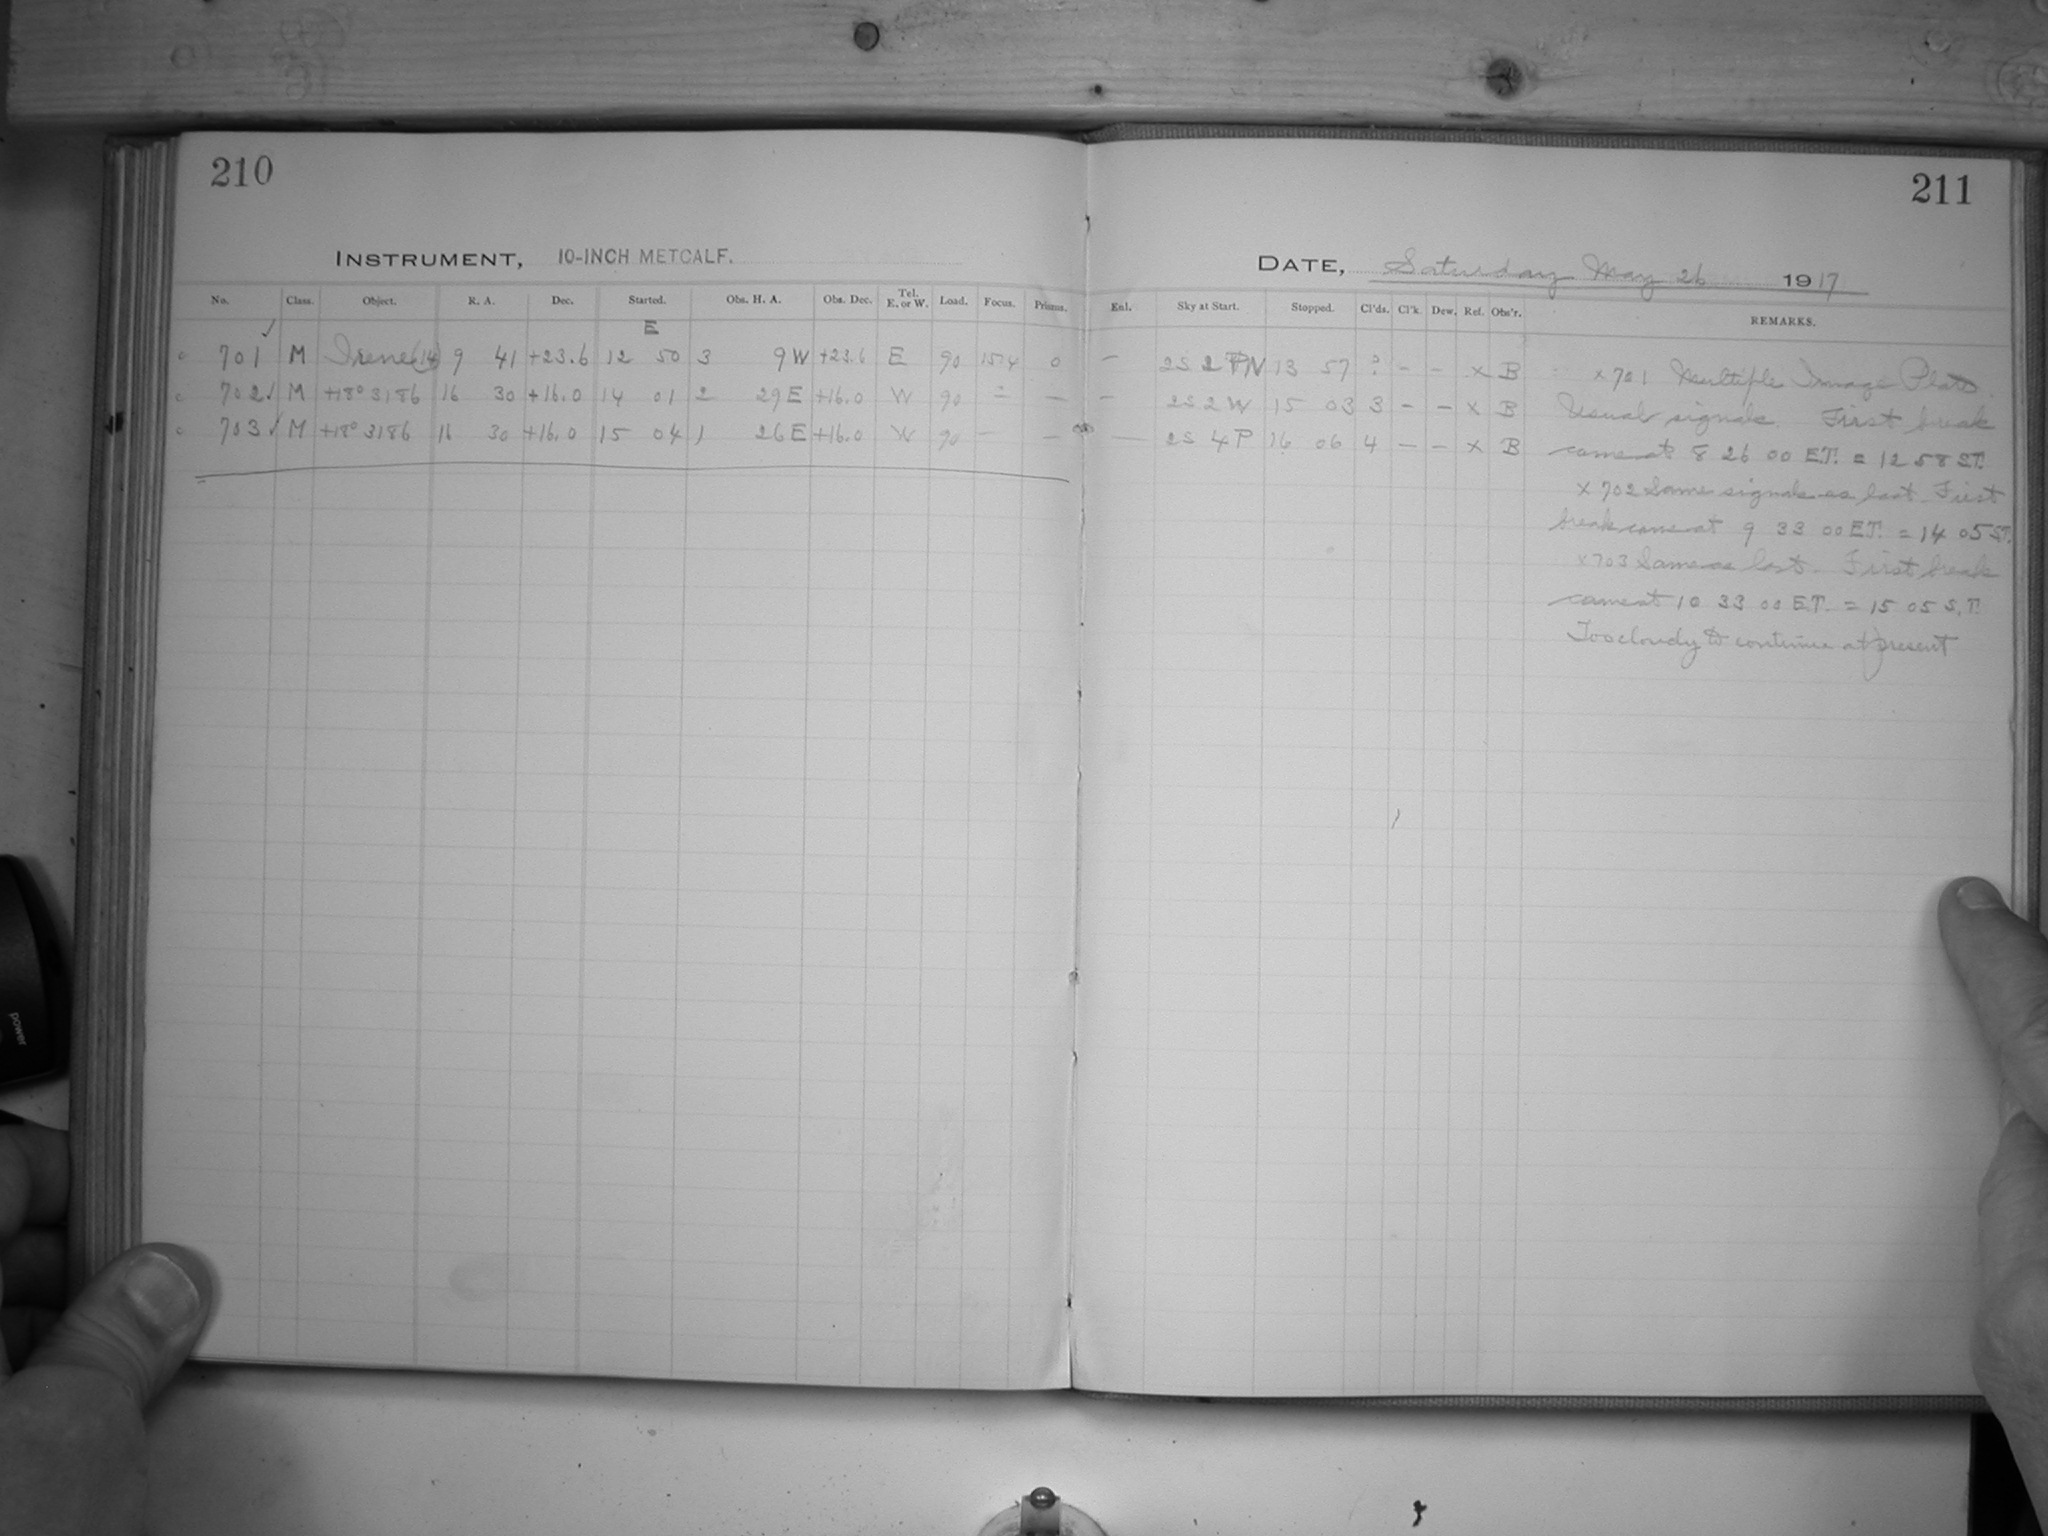 210
211
INSTRUMENT, 10-INCH METCALF.
DATE, Saturday May 26 1917
No. Class. Object. R. A. Dec. Started. Obs. H. A. Obs. Dec. Tel. E. or W. Load. Focus. Prisms. Enl. Sky at Start. Stopped. Cl'ds. Cl'k. Dew. Ref. Obs'r. REMARKS.
E
701 ✓ M Irene (14) 9 41 +23.6 12 50 3 9 W +23.6 E 90 15.4 0 — 2S 2 PN 13 57 ? – – x B
702 ✓ M +18° 3186 16 30 +16.0 14 01 2 29 E +16.0 W 90 = — – 2S 2 W 15 03 3 – – x B
703 ✓ M +18° 3186 16 30 +16.0 15 04 1 26 E +16.0 W 90 – — — 2S 4 P 16 06 4 – – x B
x 701 Multiple Image Plate.
Usual signals. First break
came at 8 26 00 E.T. = 12 58 S.T.
x 702 Same signals as last. First
break came at 9 33 00 E.T. = 14 05 S.T.
x 703 Same as last. First break
came at 10 33 00 E.T. = 15 05 S.T.
Too cloudy to continue at present
power